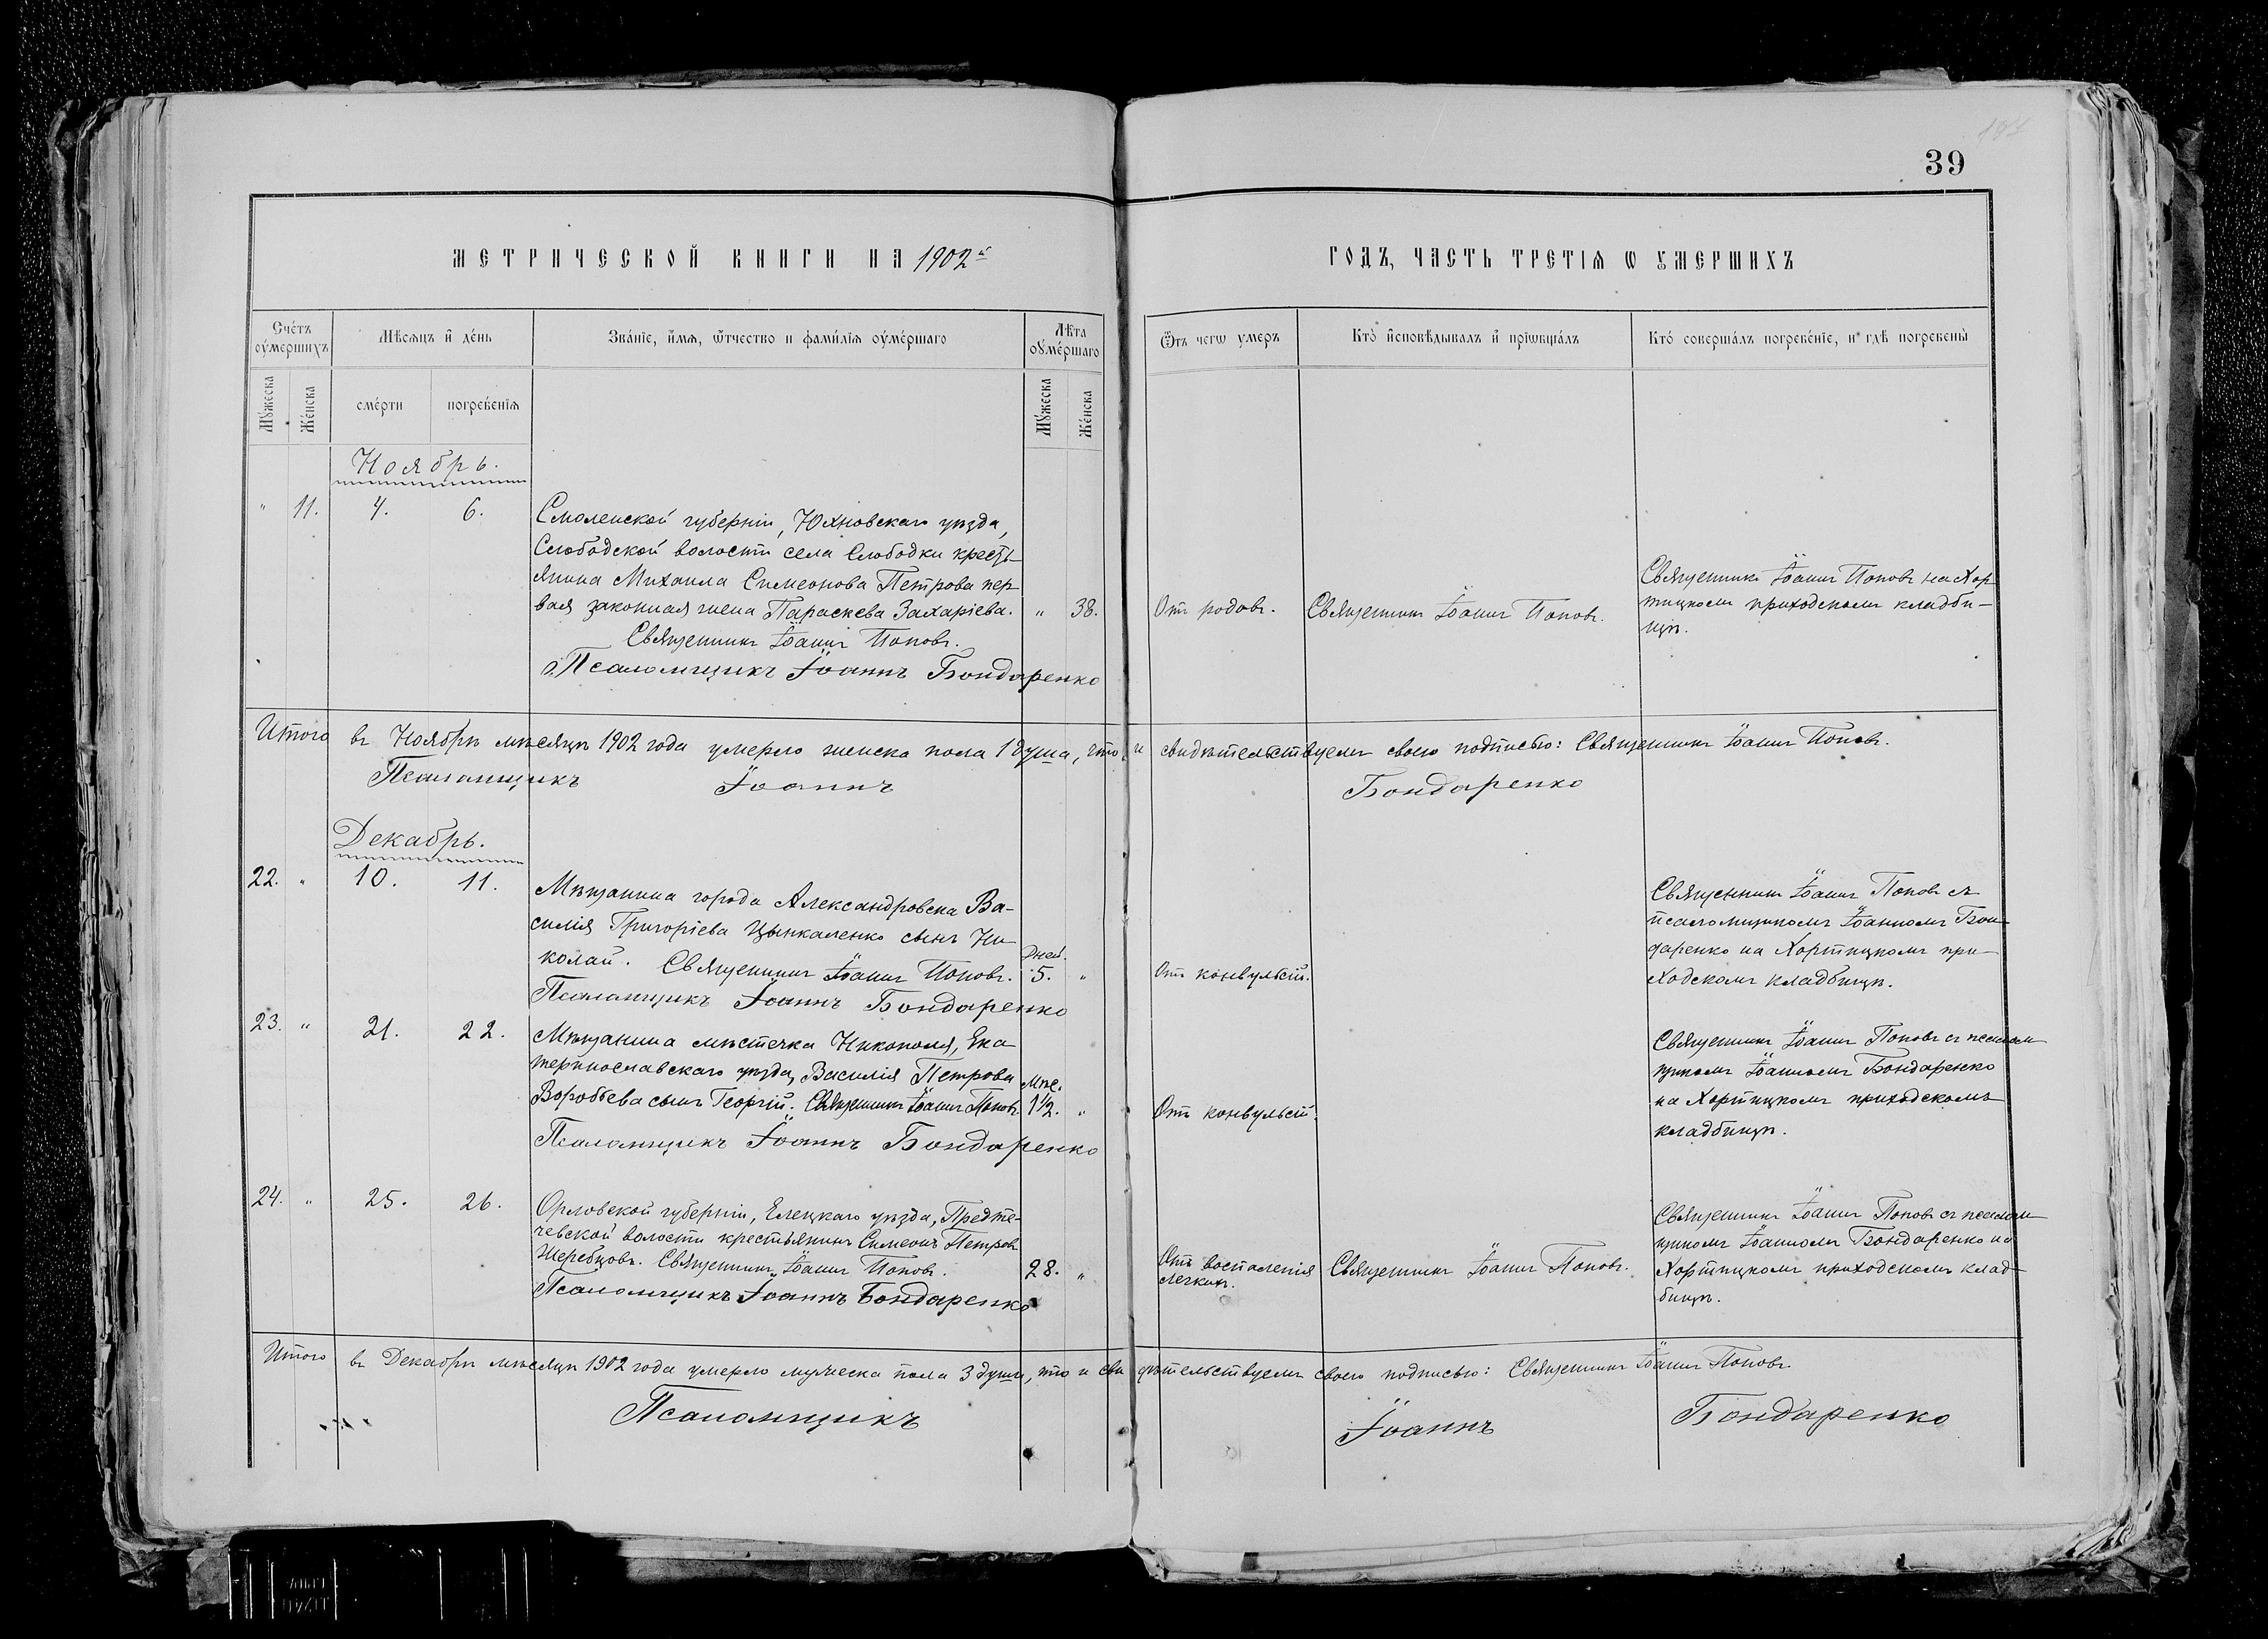 39
МЕТРИЧЕСКОЙ КНИГИ НА 1902й
ГОДЪ, ЧАСТЬ ТРЕТІѦ Ѡ ОУМЕРШИХЪ
Сче́тъ оу҆ме́ршихъ
Мѣ́сѧцъ и҆ де́нь
Зва́нїе, и҆́мѧ, ѻ҆́тчество и фами́лїѧ оу҆ме́ршаго
Лѣ́та оу҆ме́ршаго
Ѿ чегѡ̀ умеръ
Кто̀ и҆сповѣ́дывалъ и҆ прїѡбща́лъ
Кто́ соверша́лъ погребе́нїе, и гдѣ̀ погребены̀
Мꙋ́жеска
Же́нска
сме́рти
погребе́нїѧ
Мꙋ́жеска
Же́нска
Ноябрь.
" 11. 4. 6.
Смоленской губерніи, Юхновскаго уѣзда,
Слободской волости села Слободки кресть-
янина Михаила Симеонова Петрова пер-
вая законная жена Параскева Захаріева. " 38.
Священникъ Іоаннъ Поповъ.
Псаломщикъ Іоаннъ Бондаренко
Отъ родовъ.
Священникъ Іоаннъ Поповъ.
Священникъ Іоаннъ Поповъ на Хор-
тицкомъ приходскомъ кладби-
щѣ.
Итого въ Ноябрѣ мѣсяцѣ 1902 года умерло женска пола 1 душа, что и свидѣтельствуемъ своею подписью: Священникъ Іоаннъ Поповъ.
Псаломщикъ Іоаннъ Бондаренко
Декабрь.
22. " 10. 11.
Мѣщанина города Александровска Ва-
силія Григоріева Цынкаленко сынъ Ни-
колай. Священникъ Іоаннъ Поповъ.
Дней.
5. "
Псаломщикъ Іоаннъ Бондаренко
Отъ конвульсій.
Священникъ Іоаннъ Поповъ съ
псаломщикомъ Іоанномъ Бон-
даренко на Хортицкомъ при-
ходскомъ кладбищѣ.
23. " 21. 22.
Мѣщанина мѣстечка Никополя, Ека-
теринославскаго уѣзда, Василія Петрова
Воробьева сынъ Георгій. Священникъ Іоаннъ Поповъ
Мѣс.
1½. "
Псаломщикъ Іоаннъ Бондаренко
Отъ конвульсій.
Священникъ Іоаннъ Поповъ съ псалом-
щикомъ Іоанномъ Бондаренко
на Хортицкомъ приходскомъ
кладбищѣ.
24. " 25. 26.
Орловской губерніи, Елецкаго уѣзда, Предте-
чевской волости крестьянинъ Симеонъ Петровъ
Жеребцовъ. Священникъ Іоаннъ Поповъ. 28. "
Псаломщикъ Іоаннъ Бондаренко
Отъ воспаленія
легкихъ.
Священникъ Іоаннъ Поповъ.
Священникъ Іоаннъ Поповъ съ псалом-
щикомъ Іоанномъ Бондаренко на
Хортицкомъ приходскомъ клад-
бищѣ.
Итого въ Декабрѣ мѣсяцѣ 1902 года умерло мужеска пола 3 души, что и свидѣтельствуемъ своею подписью: Священникъ Іоаннъ Поповъ
Псаломщикъ Іоаннъ Бондаренко